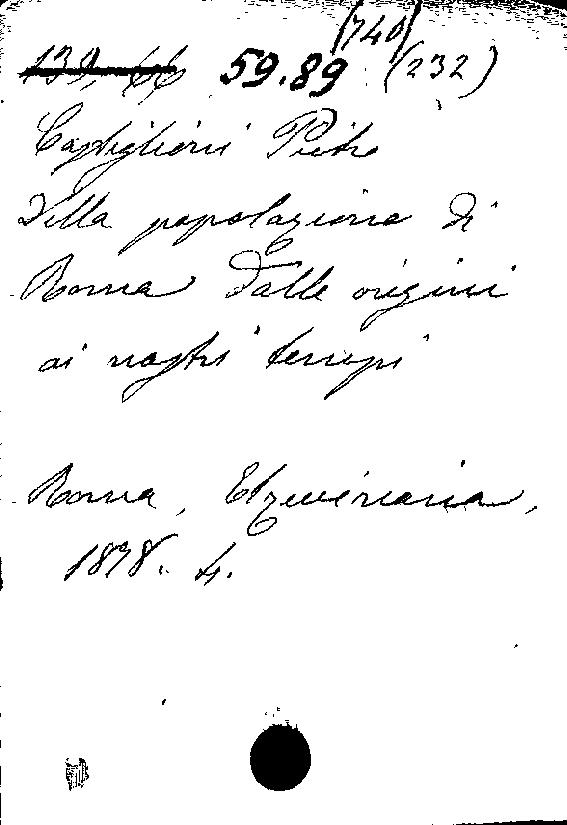 (740)
133, 66 59.89 (232)
Castiglioni Pietro
Della popolazione di
Roma dalle origini
ai nostri tempi
Roma, Elzeviriana,
1878. 4.